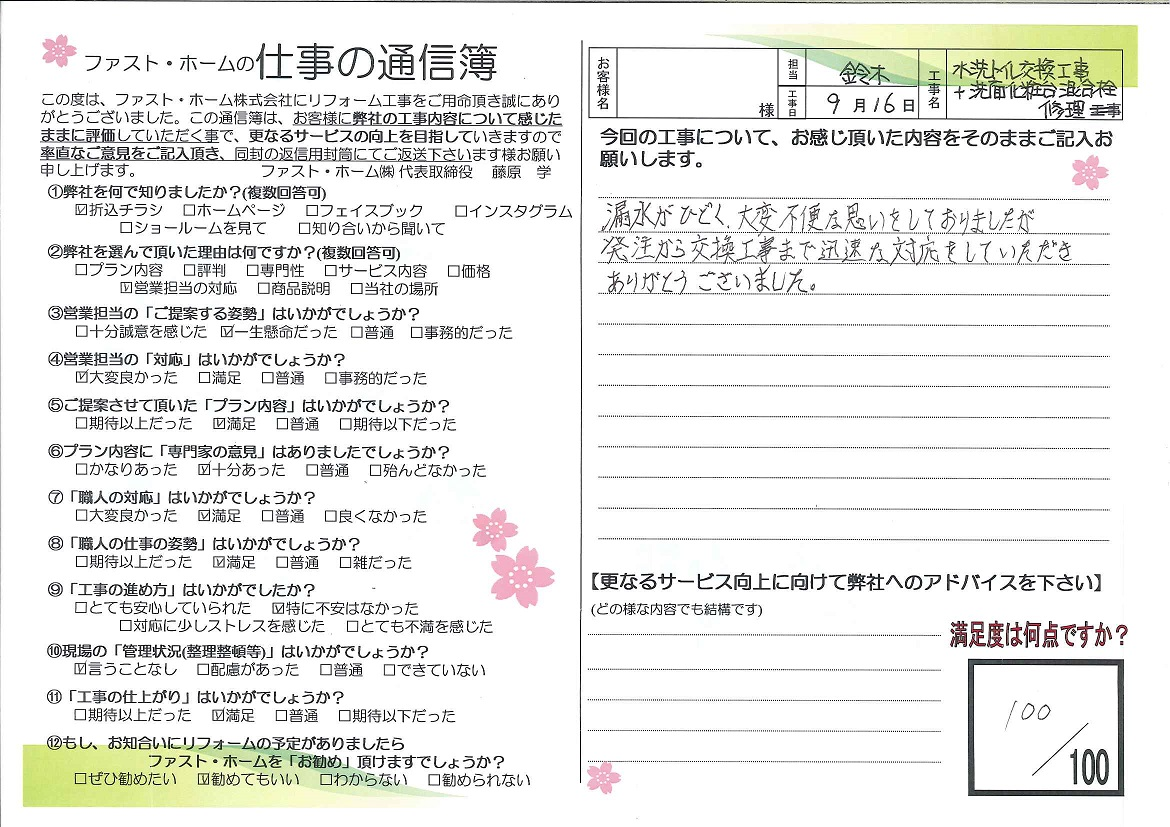 ファスト・ホームの仕事の通信簿
この度は、ファスト・ホーム株式会社にリフォーム工事をご用命頂き誠にあり
がとうございました。この通信簿は、お客様に弊社の工事内容について感じた
ままに評価していただく事で、更なるサービスの向上を目指していきますので
率直なご意見をご記入頂き、同封の返信用封筒にてご返送下さいます様お願い
申し上げます。 ファスト・ホーム㈱ 代表取締役 藤原 学
①弊社を何で知りましたか？(複数回答可)
☑折込チラシ □ホームページ □フェイスブック □インスタグラム
□ショールームを見て □知り合いから聞いて
②弊社を選んで頂いた理由は何ですか？(複数回答可)
□プラン内容 □評判 □専門性 □サービス内容 □価格
☑営業担当の対応 □商品説明 □当社の場所
③営業担当の「ご提案する姿勢」はいかがでしょうか？
□十分誠意を感じた ☑一生懸命だった □普通 □事務的だった
④営業担当の「対応」はいかがでしょうか？
☑大変良かった □満足 □普通 □事務的だった
⑤ご提案させて頂いた「プラン内容」はいかがでしょうか？
□期待以上だった ☑満足 □普通 □期待以下だった
⑥プラン内容に「専門家の意見」はありましたでしょうか？
□かなりあった ☑十分あった □普通 □殆んどなかった
⑦「職人の対応」はいかがでしょうか？
□大変良かった ☑満足 □普通 □良くなかった
⑧「職人の仕事の姿勢」はいかがでしょうか？
□期待以上だった ☑満足 □普通 □雑だった
⑨「工事の進め方」はいかがでしたか？
□とても安心していられた ☑特に不安はなかった
□対応に少しストレスを感じた □とても不満を感じた
⑩現場の「管理状況(整理整頓等)」はいかがでしょうか？
☑言うことなし □配慮があった □普通 □できていない
⑪「工事の仕上がり」はいかがでしょうか？
□期待以上だった ☑満足 □普通 □期待以下だった
⑫もし、お知合いにリフォームの予定がありましたら
ファスト・ホームを「お勧め」頂けますでしょうか？
□ぜひ勧めたい ☑勧めてもいい □わからない □勧められない
お客様名 様
担当 鈴木
工事日 9月16日
工事名 水洗トイレ交換工事
+洗面化粧台混合栓
修理工事
今回の工事について、お感じ頂いた内容をそのままご記入お
願いします。
漏水がひどく、大変不便な思いをしておりましたが
発注から交換工事まで迅速な対応をしていただき
ありがとうございました。
【更なるサービス向上に向けて弊社へのアドバイスを下さい】
(どの様な内容でも結構です)
満足度は何点ですか？
100/100